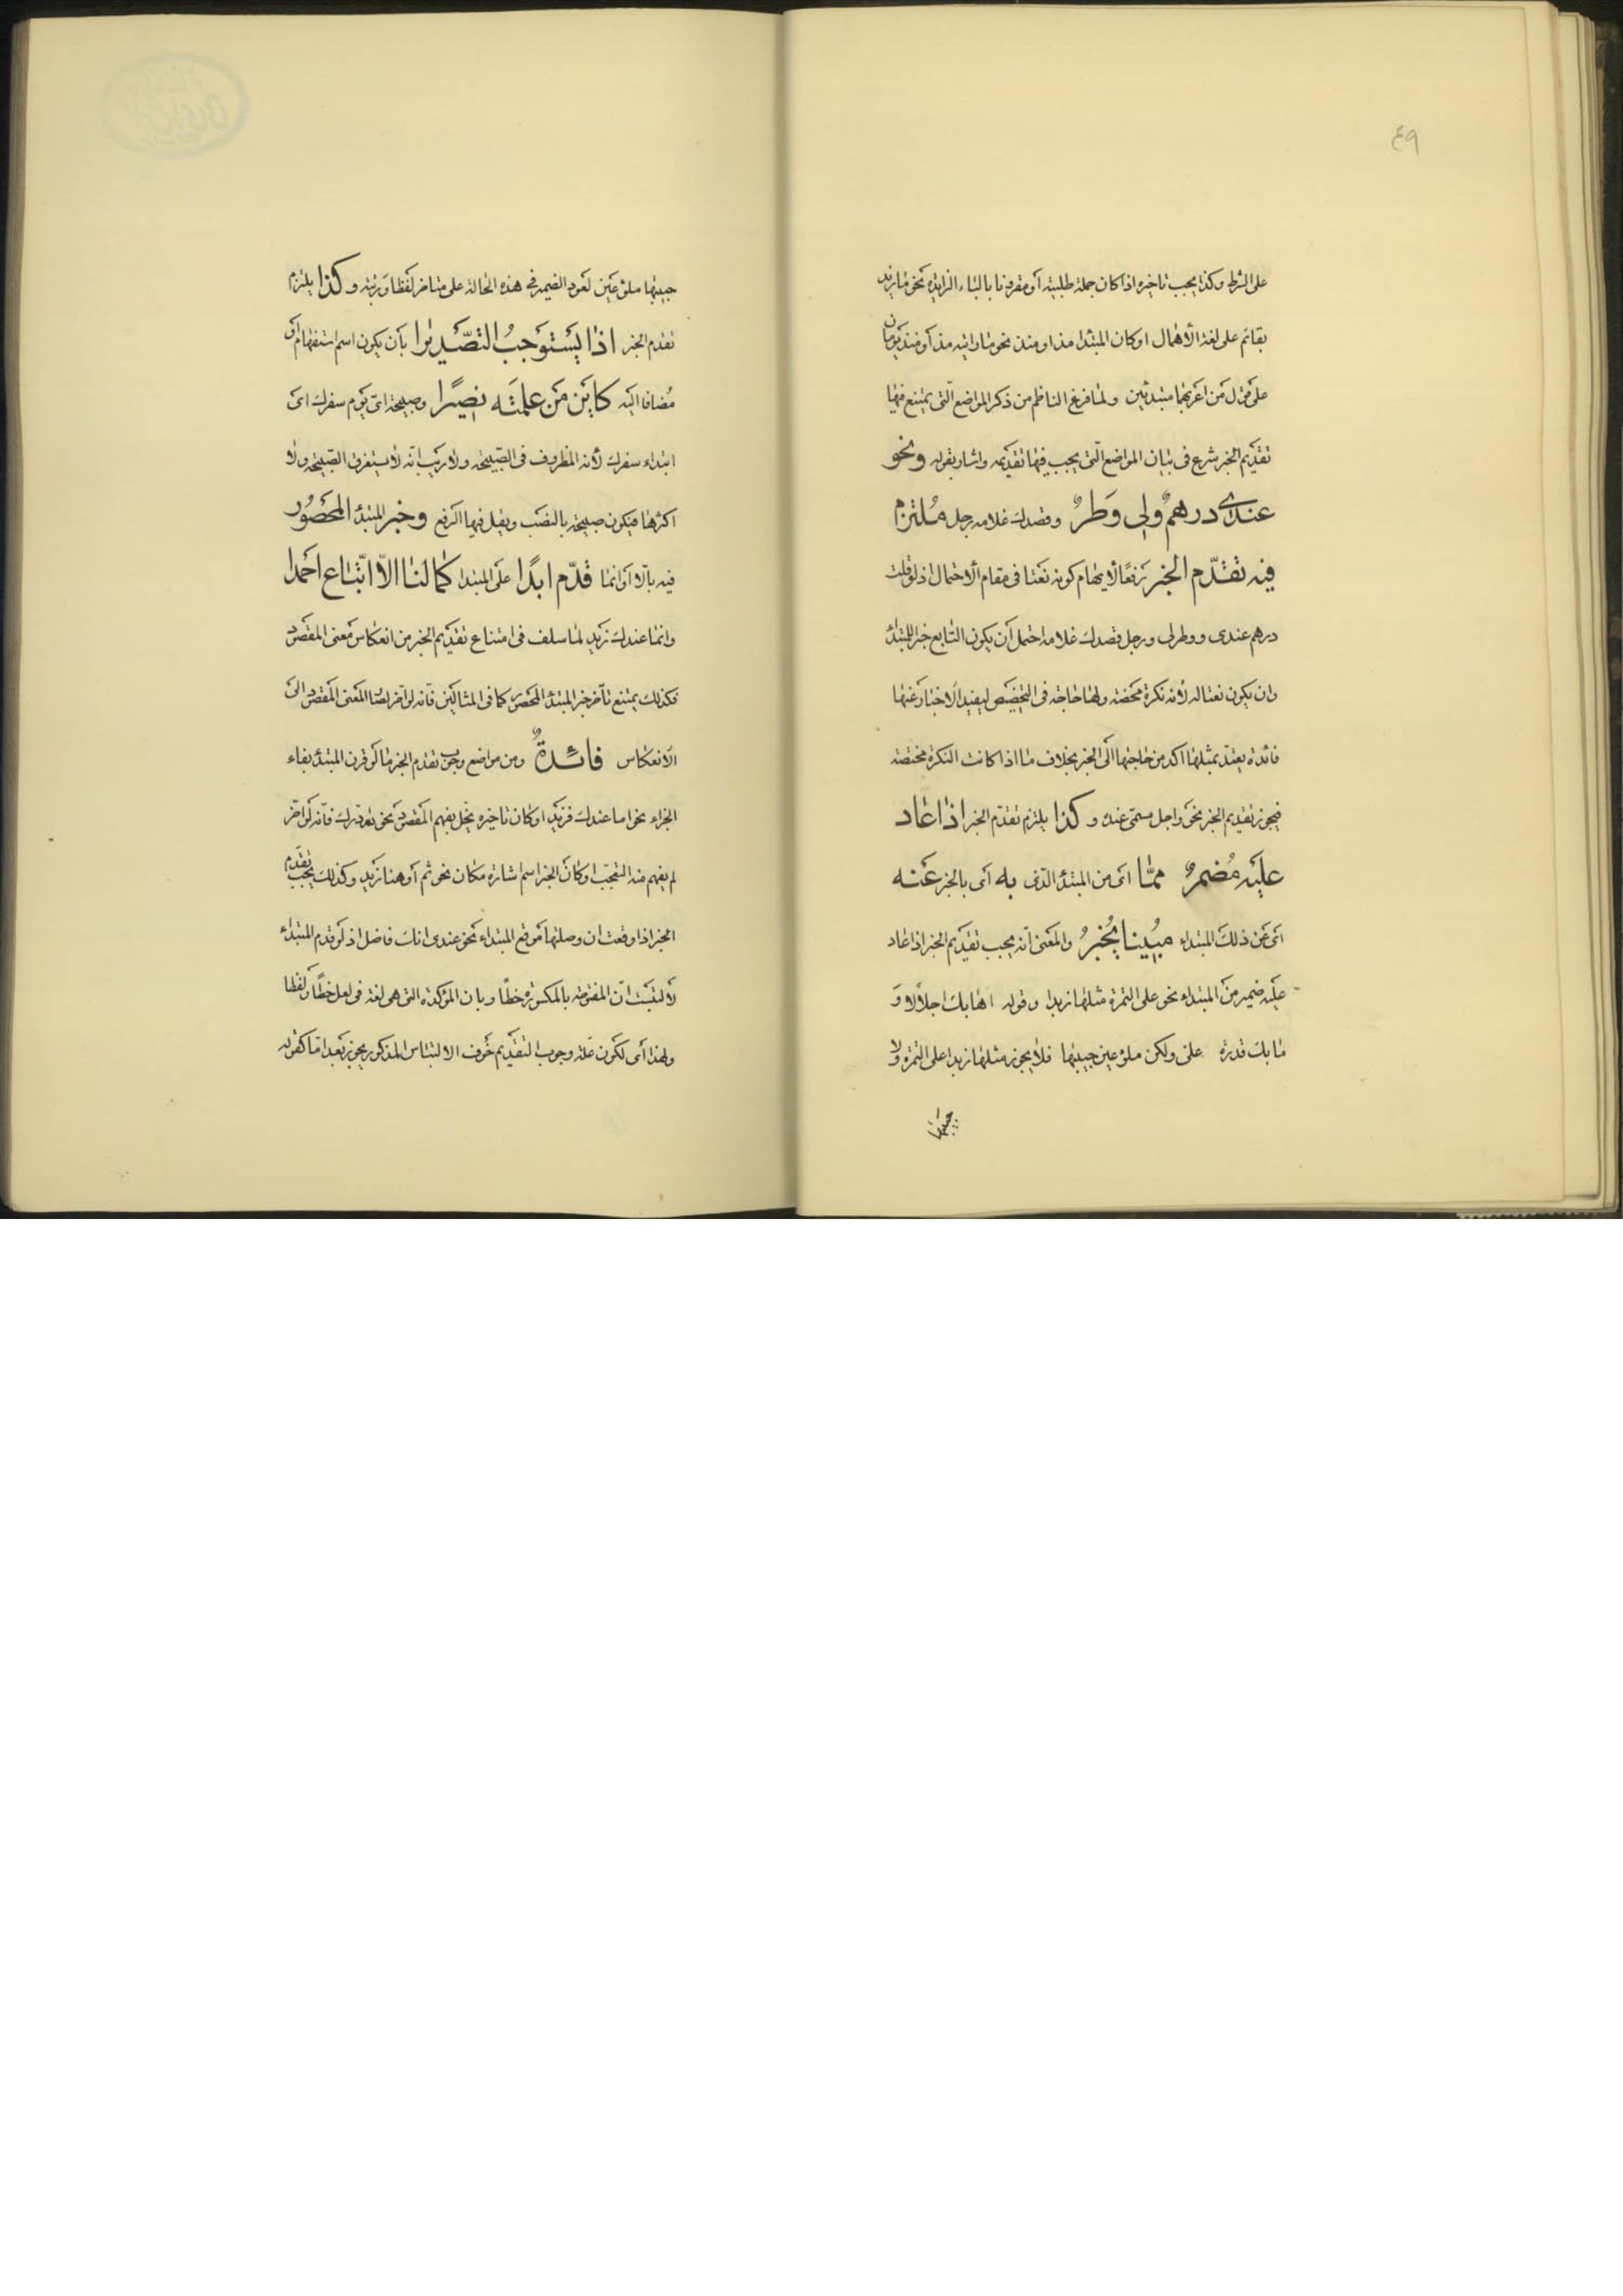 ٤٩
على الشرط وكذا يجب تاخيره اذا كان جملة طلبية أو مقرونا بالباء الزايدة نحو ما زيد
بقائم على لغة الأهمال اوكان المبتدا مذ او منذ نحو ما رايته مذ أو منذ يومان
على قول من اعربهما مبتدئين ولما فرغ الناظم من ذكر المواضع الّتى يمتنع فيها
تقديم الخبر شرع فى بيان المواضع الّتى يجب فيها تقديمه واشار بقوله ونحو
عندى درهمٌ ولى وَطرٌ وقصدك غلامه رجل مُلتزم
فيه تقدّم الخبر رفعًا لأيهام كونه نعتا فى مقام الأحتمال اذ لو قلت
درهم عندى ووطر لى ورجل قصدك غلامه احتمل أن يكون التابع خبر اللمبتدأ
وان يكون نعتا له لأنه نكرة محضة ولها حاجة فى التخصيص ليفيد الأخبار عنها
فائدة يعتدّ بمثلها اكد من حاجتها الى الخبر بخلاف ما اذا كانت النكرة مختصة
فيجوز تقديم الخبر نحو واجل مسمّى عنده وكذا يلتزم تقدّم الخبر اذا عاد
عليه مُضمرٌ ممّا اى من المبتدأ الّذى به أى بالخبر عنه
اى عن ذلك المبتداء مبُينا يُخبرُ والمعنى أنه يجب تقديم الخبر اذا عاد
عليه ضمير من المبتداء نحو على التمرة مثلها زبدا وقوله اهابك اجلالا وَ
ما بك قدرة علىّ ولكن ملؤ عين حبيبها فلا يجوز مثلها زبدا على التمرة ولا
حبيبها
حبيبها ملؤ عين لعود الضمير فى هذه الحالة على متاخر لفظا ورتبة وكذا يلتزم
تقدم الخبر اذا يَستوَجبُ التصّديرا بأن يكون اسم استفهام أو
مُضافا اليه كاين مَن علمتَه نصيرًا وصبيحة اىّ يوم سفرك اى
ابتداء سفرك لأنه المظروف فى الصّبيحة ولا ريب انّه لا يستغرق الصّبيحة ولا
اكثرها فيكون صبيحة بالنصب ويقل فيها الرفع وخبر المبتدأ المحصُور
فيه بالّا أو انما قدّم ابدًا على المبتدا كما لنا الاّ اتّباع احمدا
وانما عندك زيد لما سلف فى امتناع تقديم الخبر من انعكاس معنى المقصود
فكذلك يمتنع تأخر خبر المبتدأ المحصور كما فى المثالين فانّه لو اخر لصار المعنى المقصود الى
الأنعكاس فائدةٌ ومن مواضع وجوب تقدم الخبر ما لو قرن المبتدأ بفاء
الجزاء نحو اما عندك فزيد اوكان تاخيره يخل بفهم المقصود نحو لله درك فأنه لو اخر
لم يفهم منه التعجّب اوكان الخبر اسم اشارة مكان نحو ثم أو هنا زيد وكذلك يجب تقدّم
الخبر اذا وقعت ان وصلتها موقع المبتداء نحو عندى انك فاضل اذ لو قدم المبتداء
لألتبست انّ المفتوحة بالمكسورة خطّا وبان المؤكدة التى هى لغة فى لعل خطّا ولفظا
ولهذا أى لكون علة وجوب التقديم خوف الالتباس المذكور يجوز بعد امّا كقوله